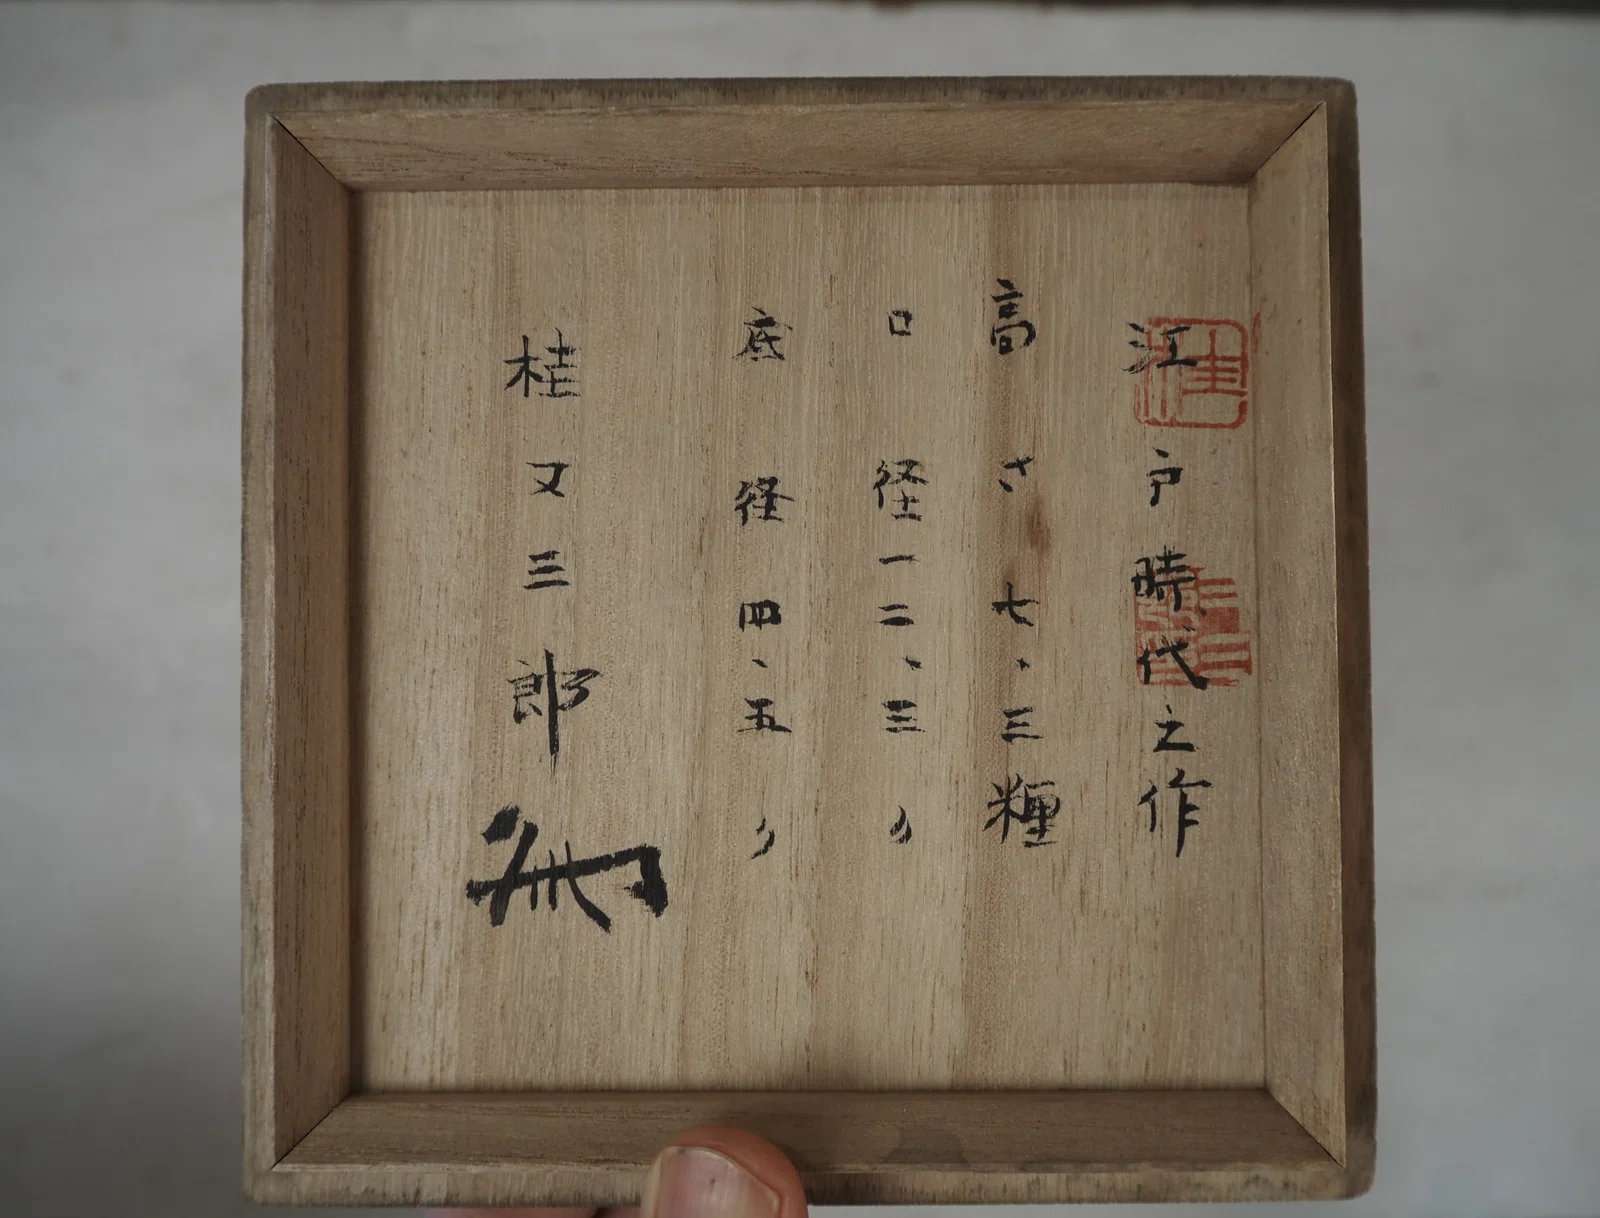 江戸時代之作
高さ七、三糎
口径一二、三〃
底径四、五〃
桂又三郎